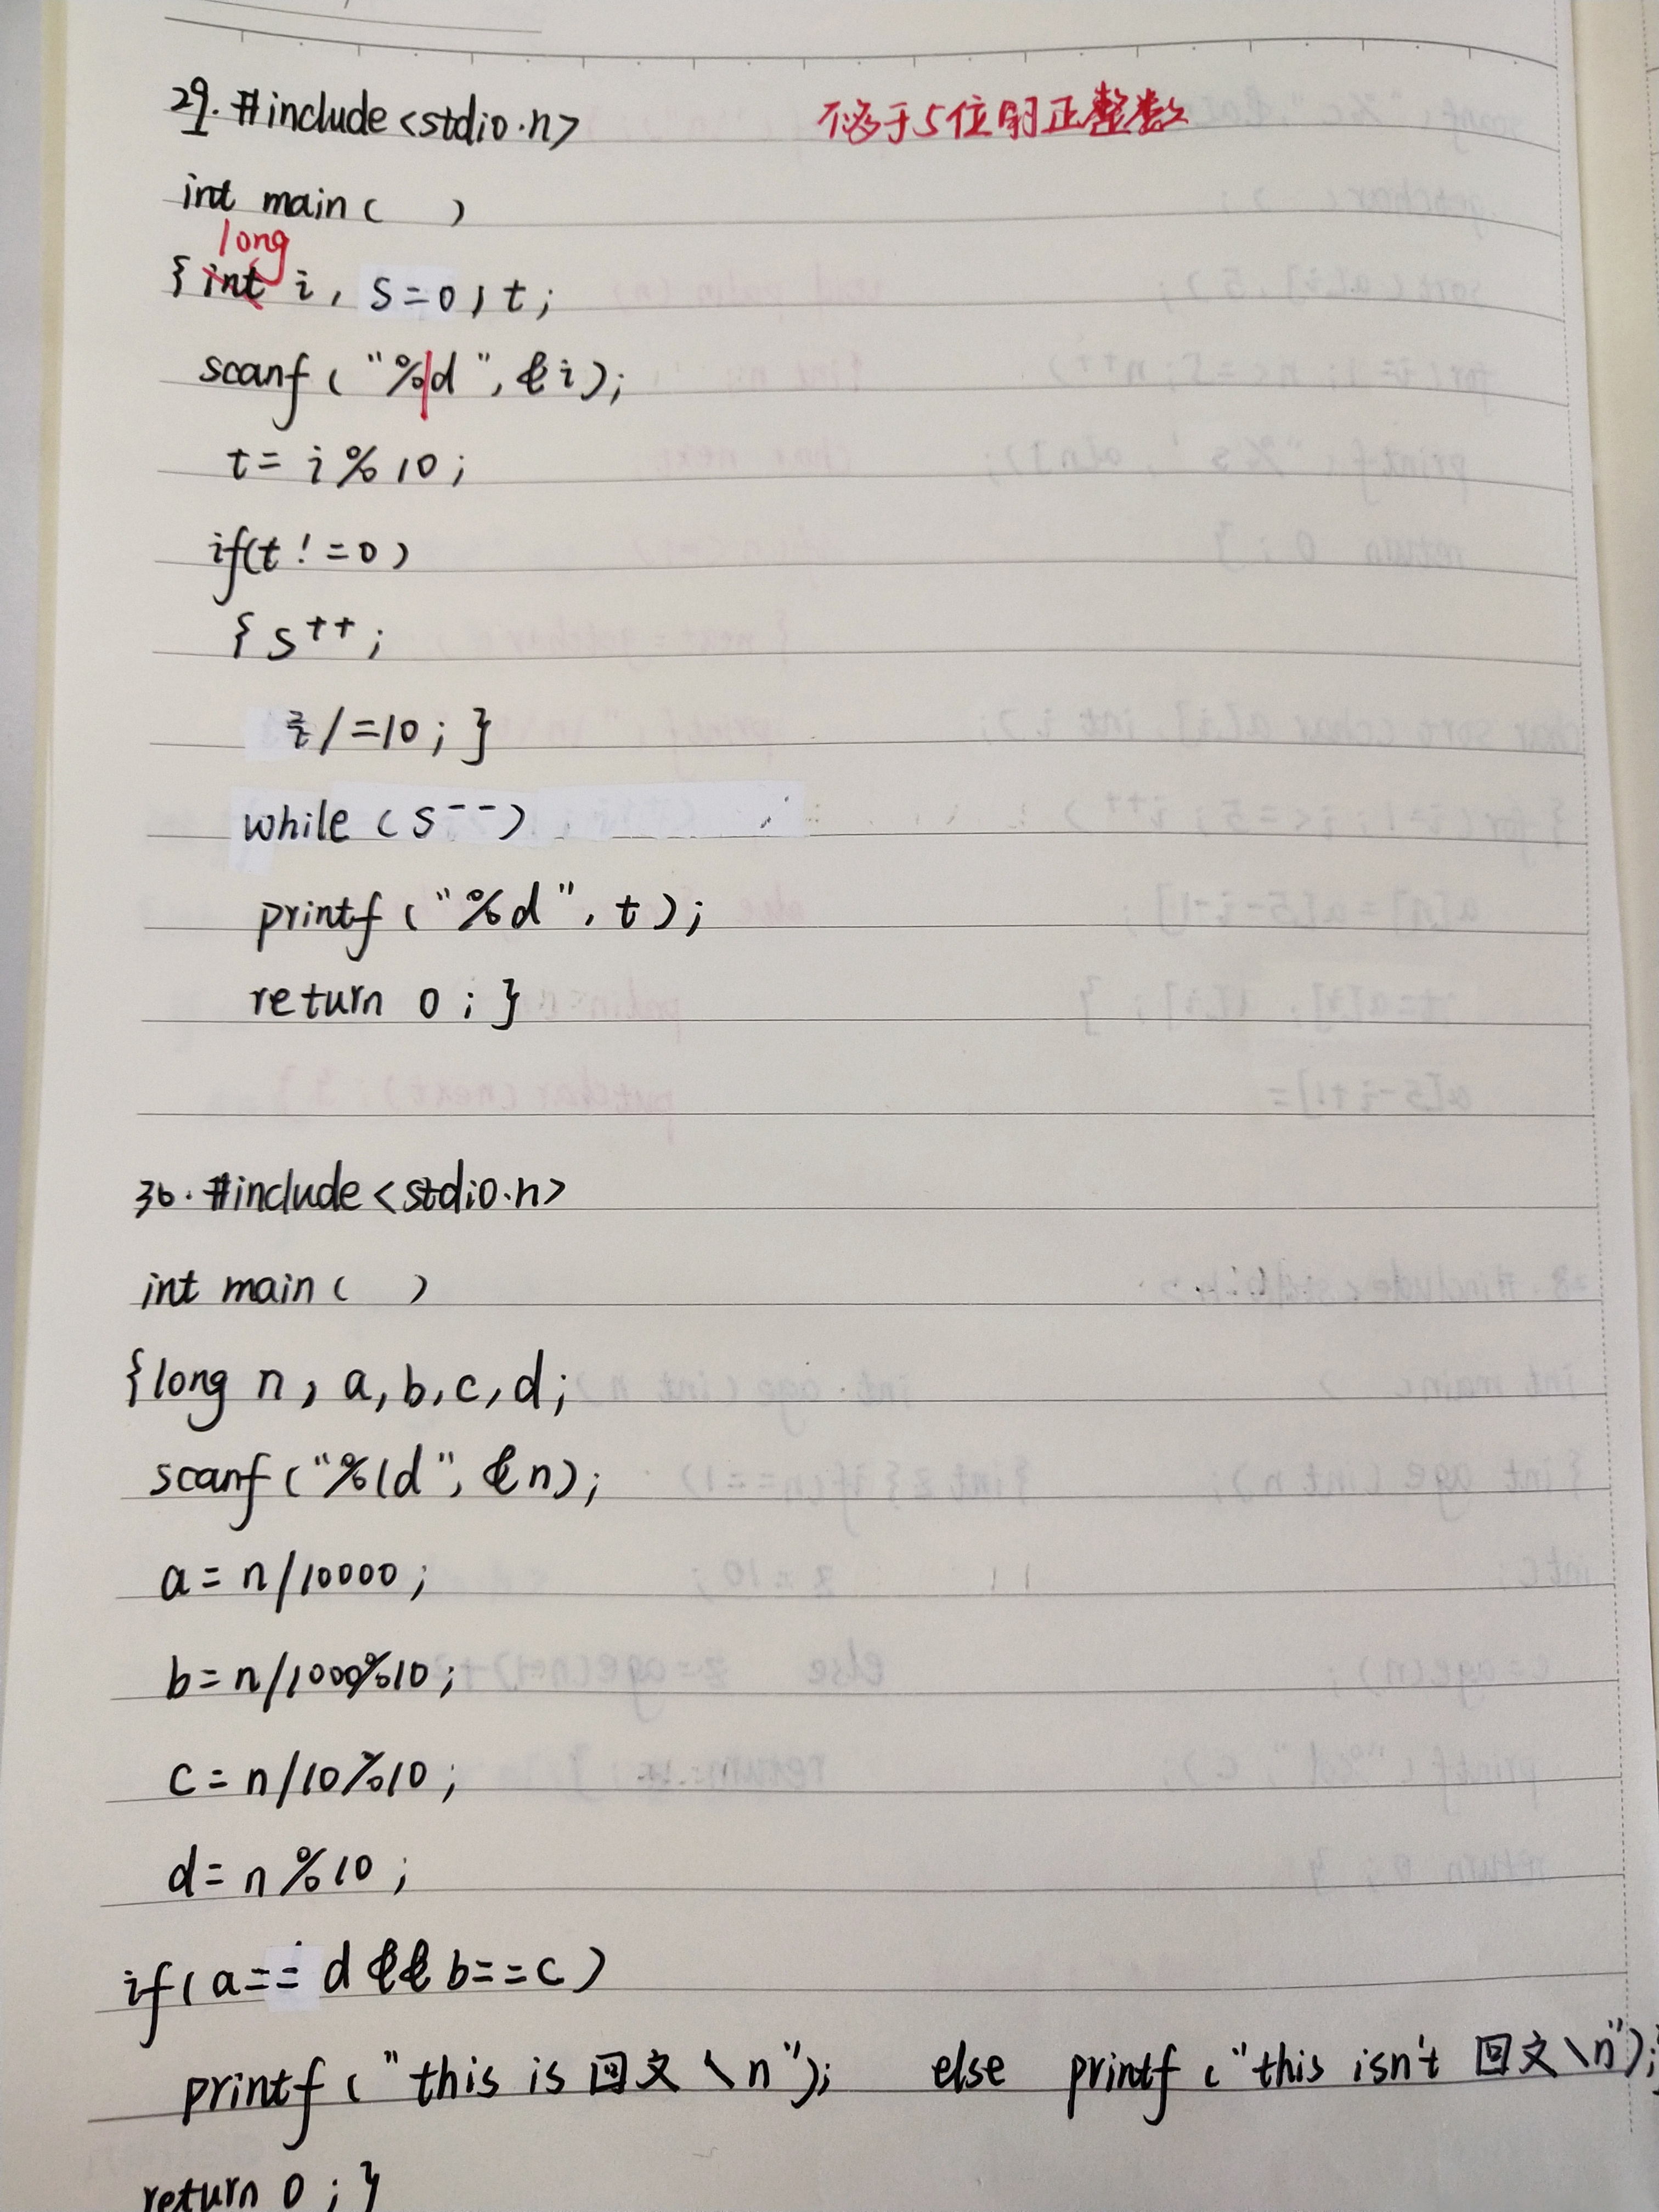 29. #include<stdio.n>
不多于5位的正整数
int main( )
long
{int i, s=0, t;
scanf("%ld", &i);
t= i%10;
if(t!=0)
{s++;
i/=10;}
while(s--)
printf("%d", t);
return 0;}
30. #include<stdio.n>
int main( )
{long n, a, b, c, d;
scanf("%ld", &n);
a=n/10000;
b=n/1000%10;
c=n/10%10;
d=n%10;
if(a==d&&b==c)
printf("this is 回文\n"); else printf("this isn't 回文\n");
return 0;}